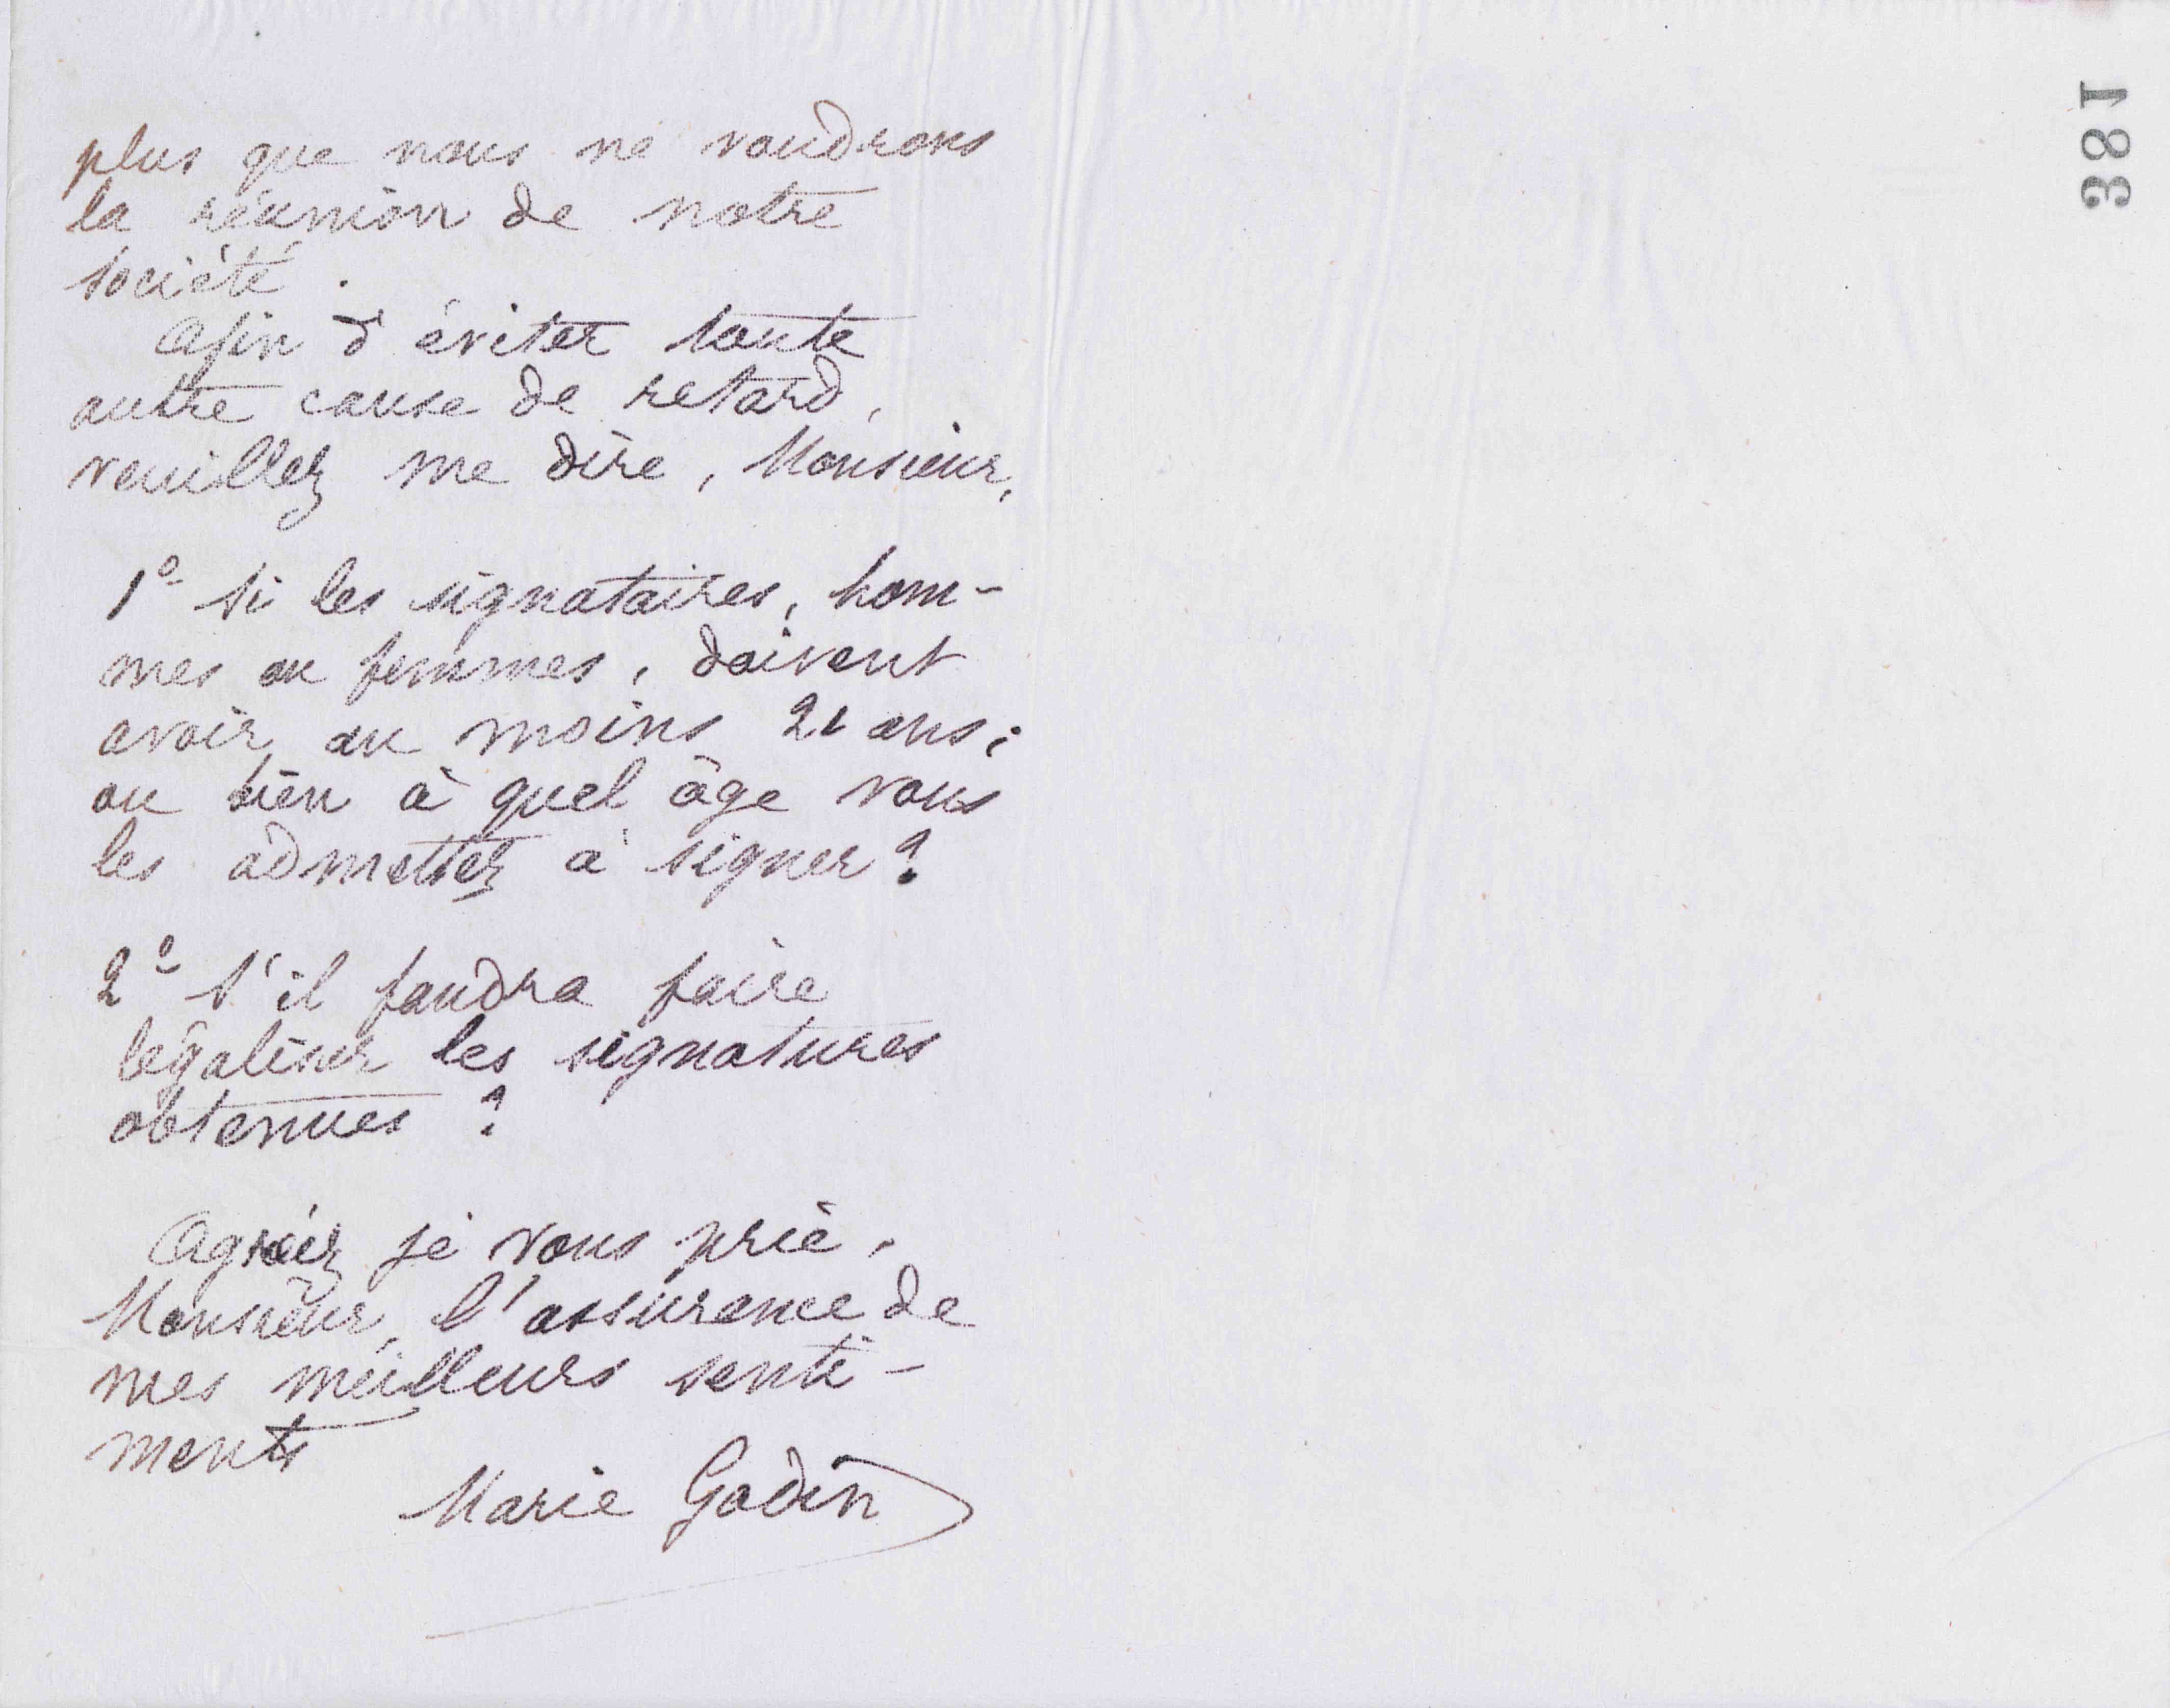 plus que nous ne voudrons
la réunion de notre
société.
Afin d'éviter toute
autre cause de retard,
veuillez me dire, Monsieur,
1º si les signataires, hom-
mes ou femmes, doivent
avoir au moins 21 ans;
ou bien à quel âge vous
les admettez à signer?
2º s'il faudra faire
légaliser les signatures
obtenues?
Agréez je vous prie,
Monsieur, l'assurance de
mes meilleurs senti-
ments
Marie Godin
381